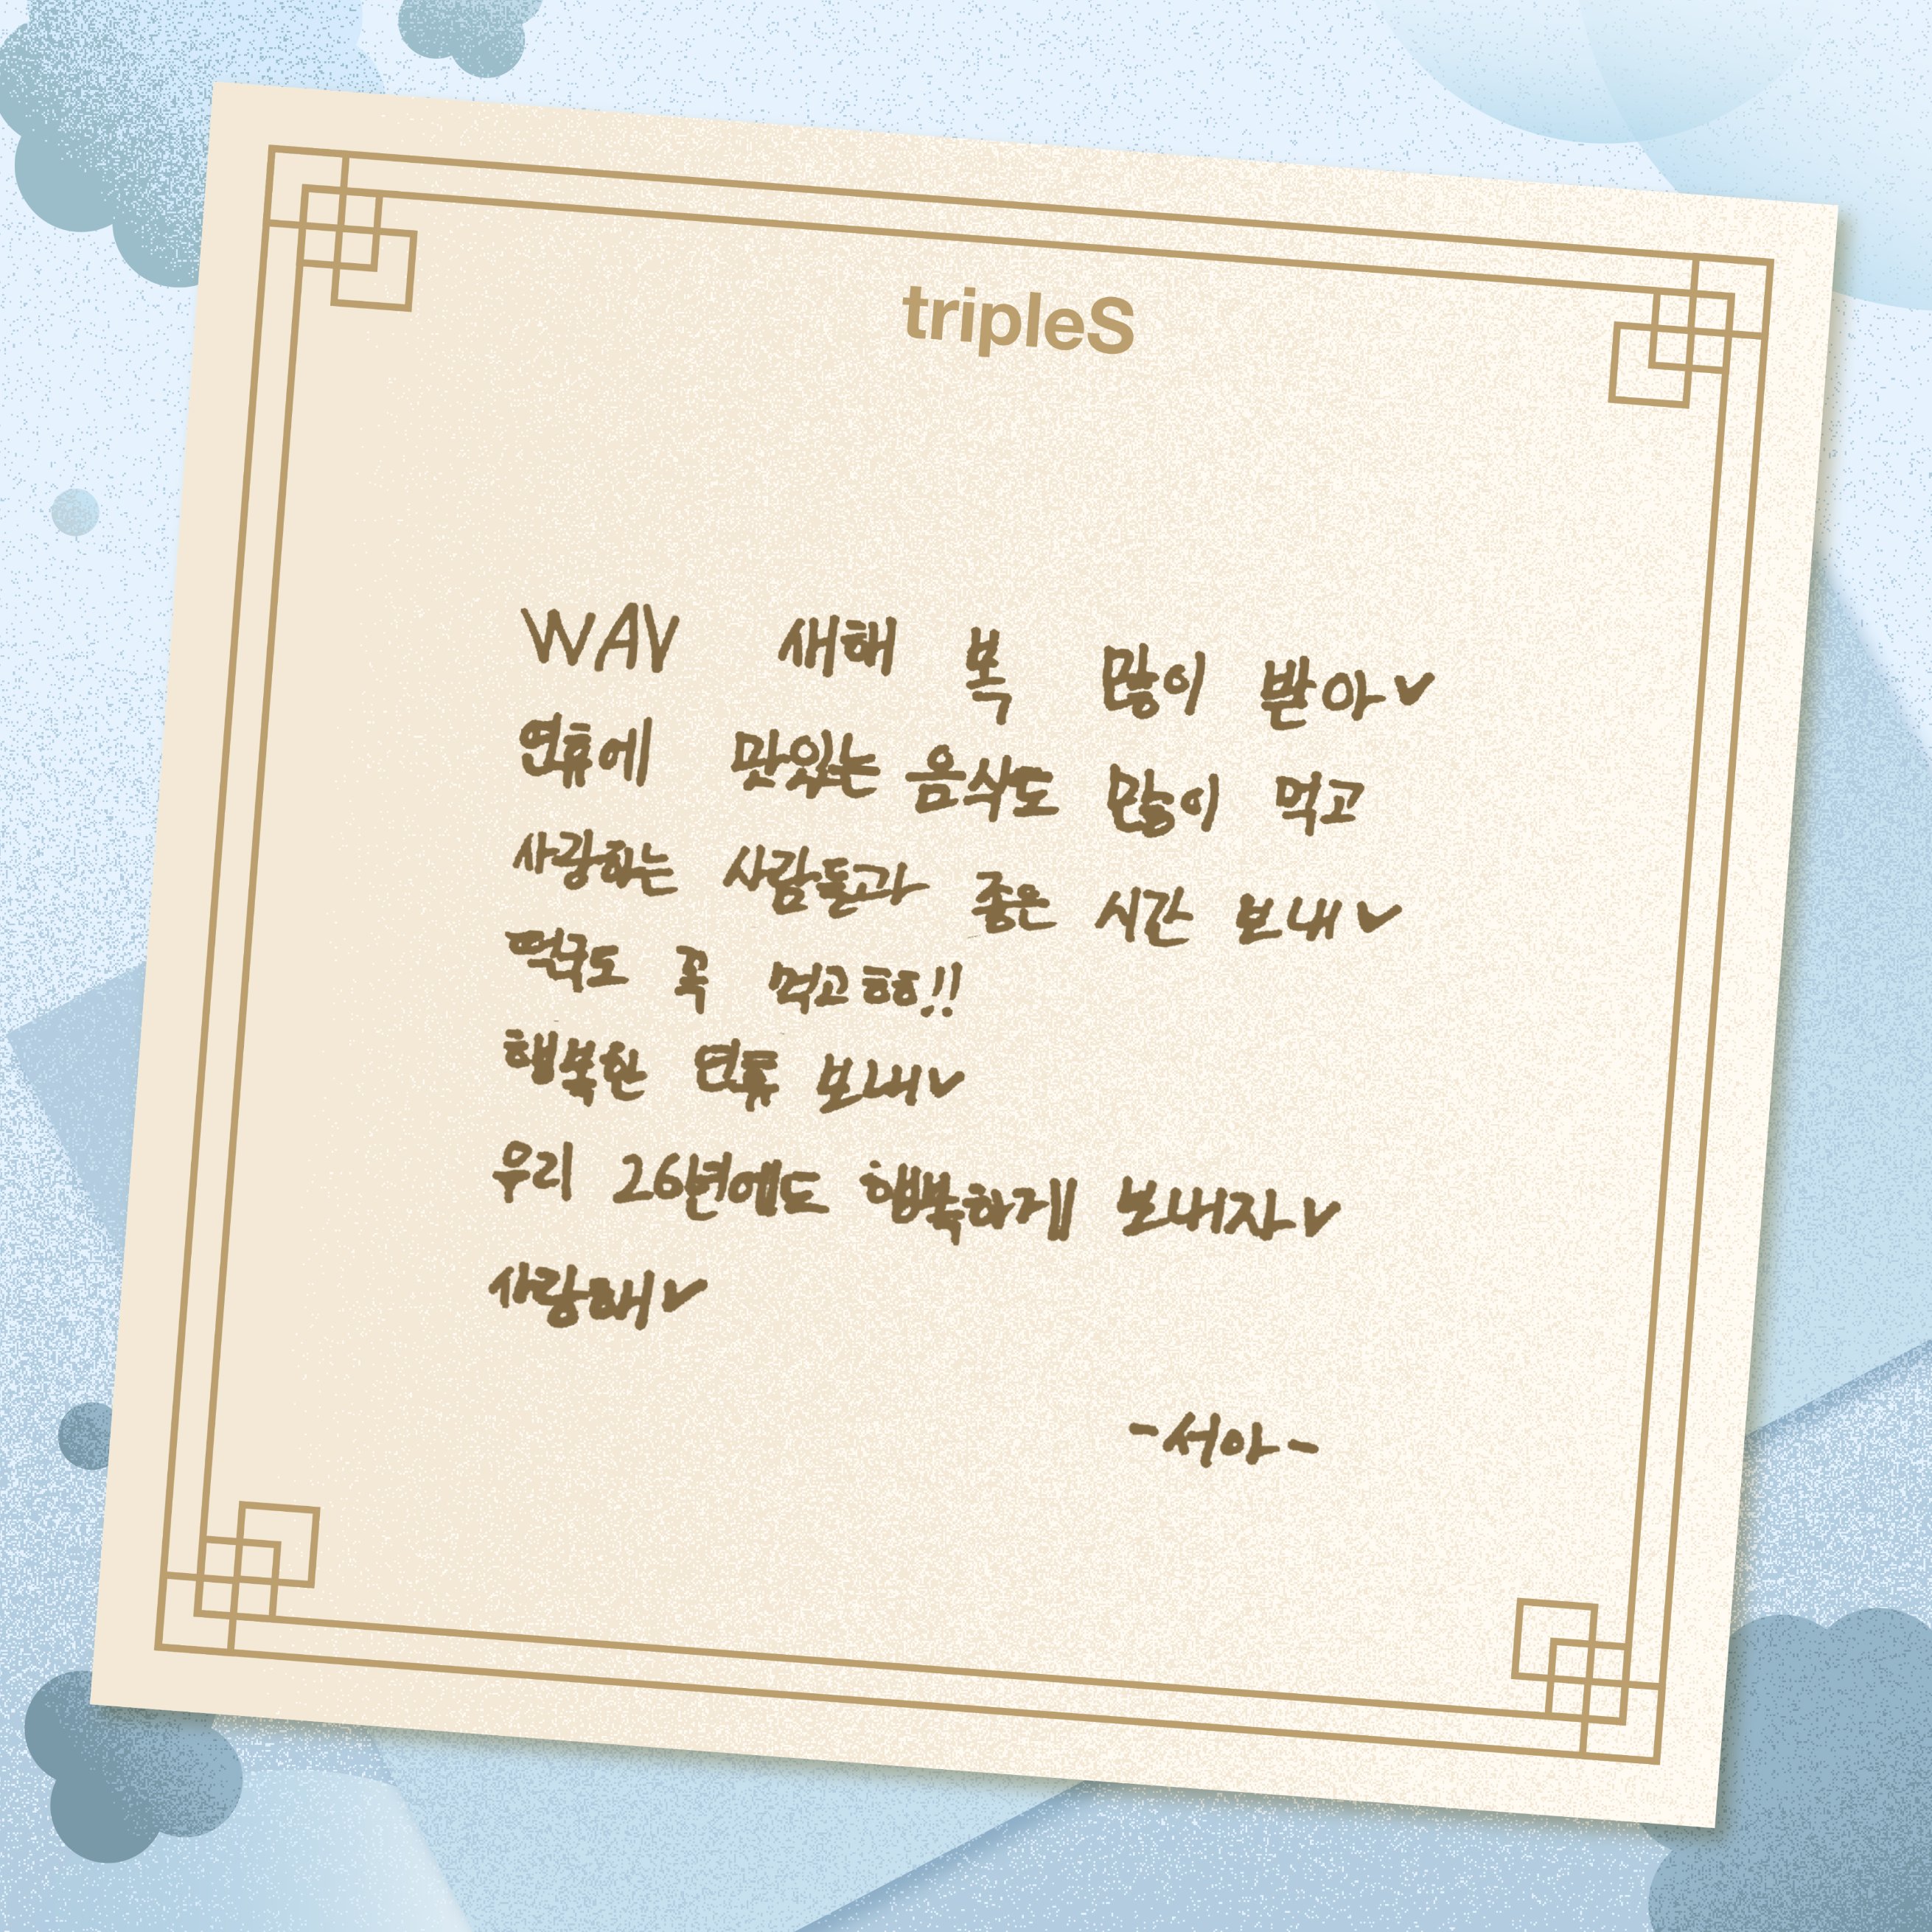 tripleS
WAV 새해 복 많이 받아♥
연휴에 맛있는 음식도 많이 먹고
사랑하는 사람들과 좋은 시간 보내♥
떡국도 꼭 먹고ㅎㅎ!!
행복한 연휴 보내♥
우리 26년에도 행복하게 보내자♥
사랑해♥
-서아-